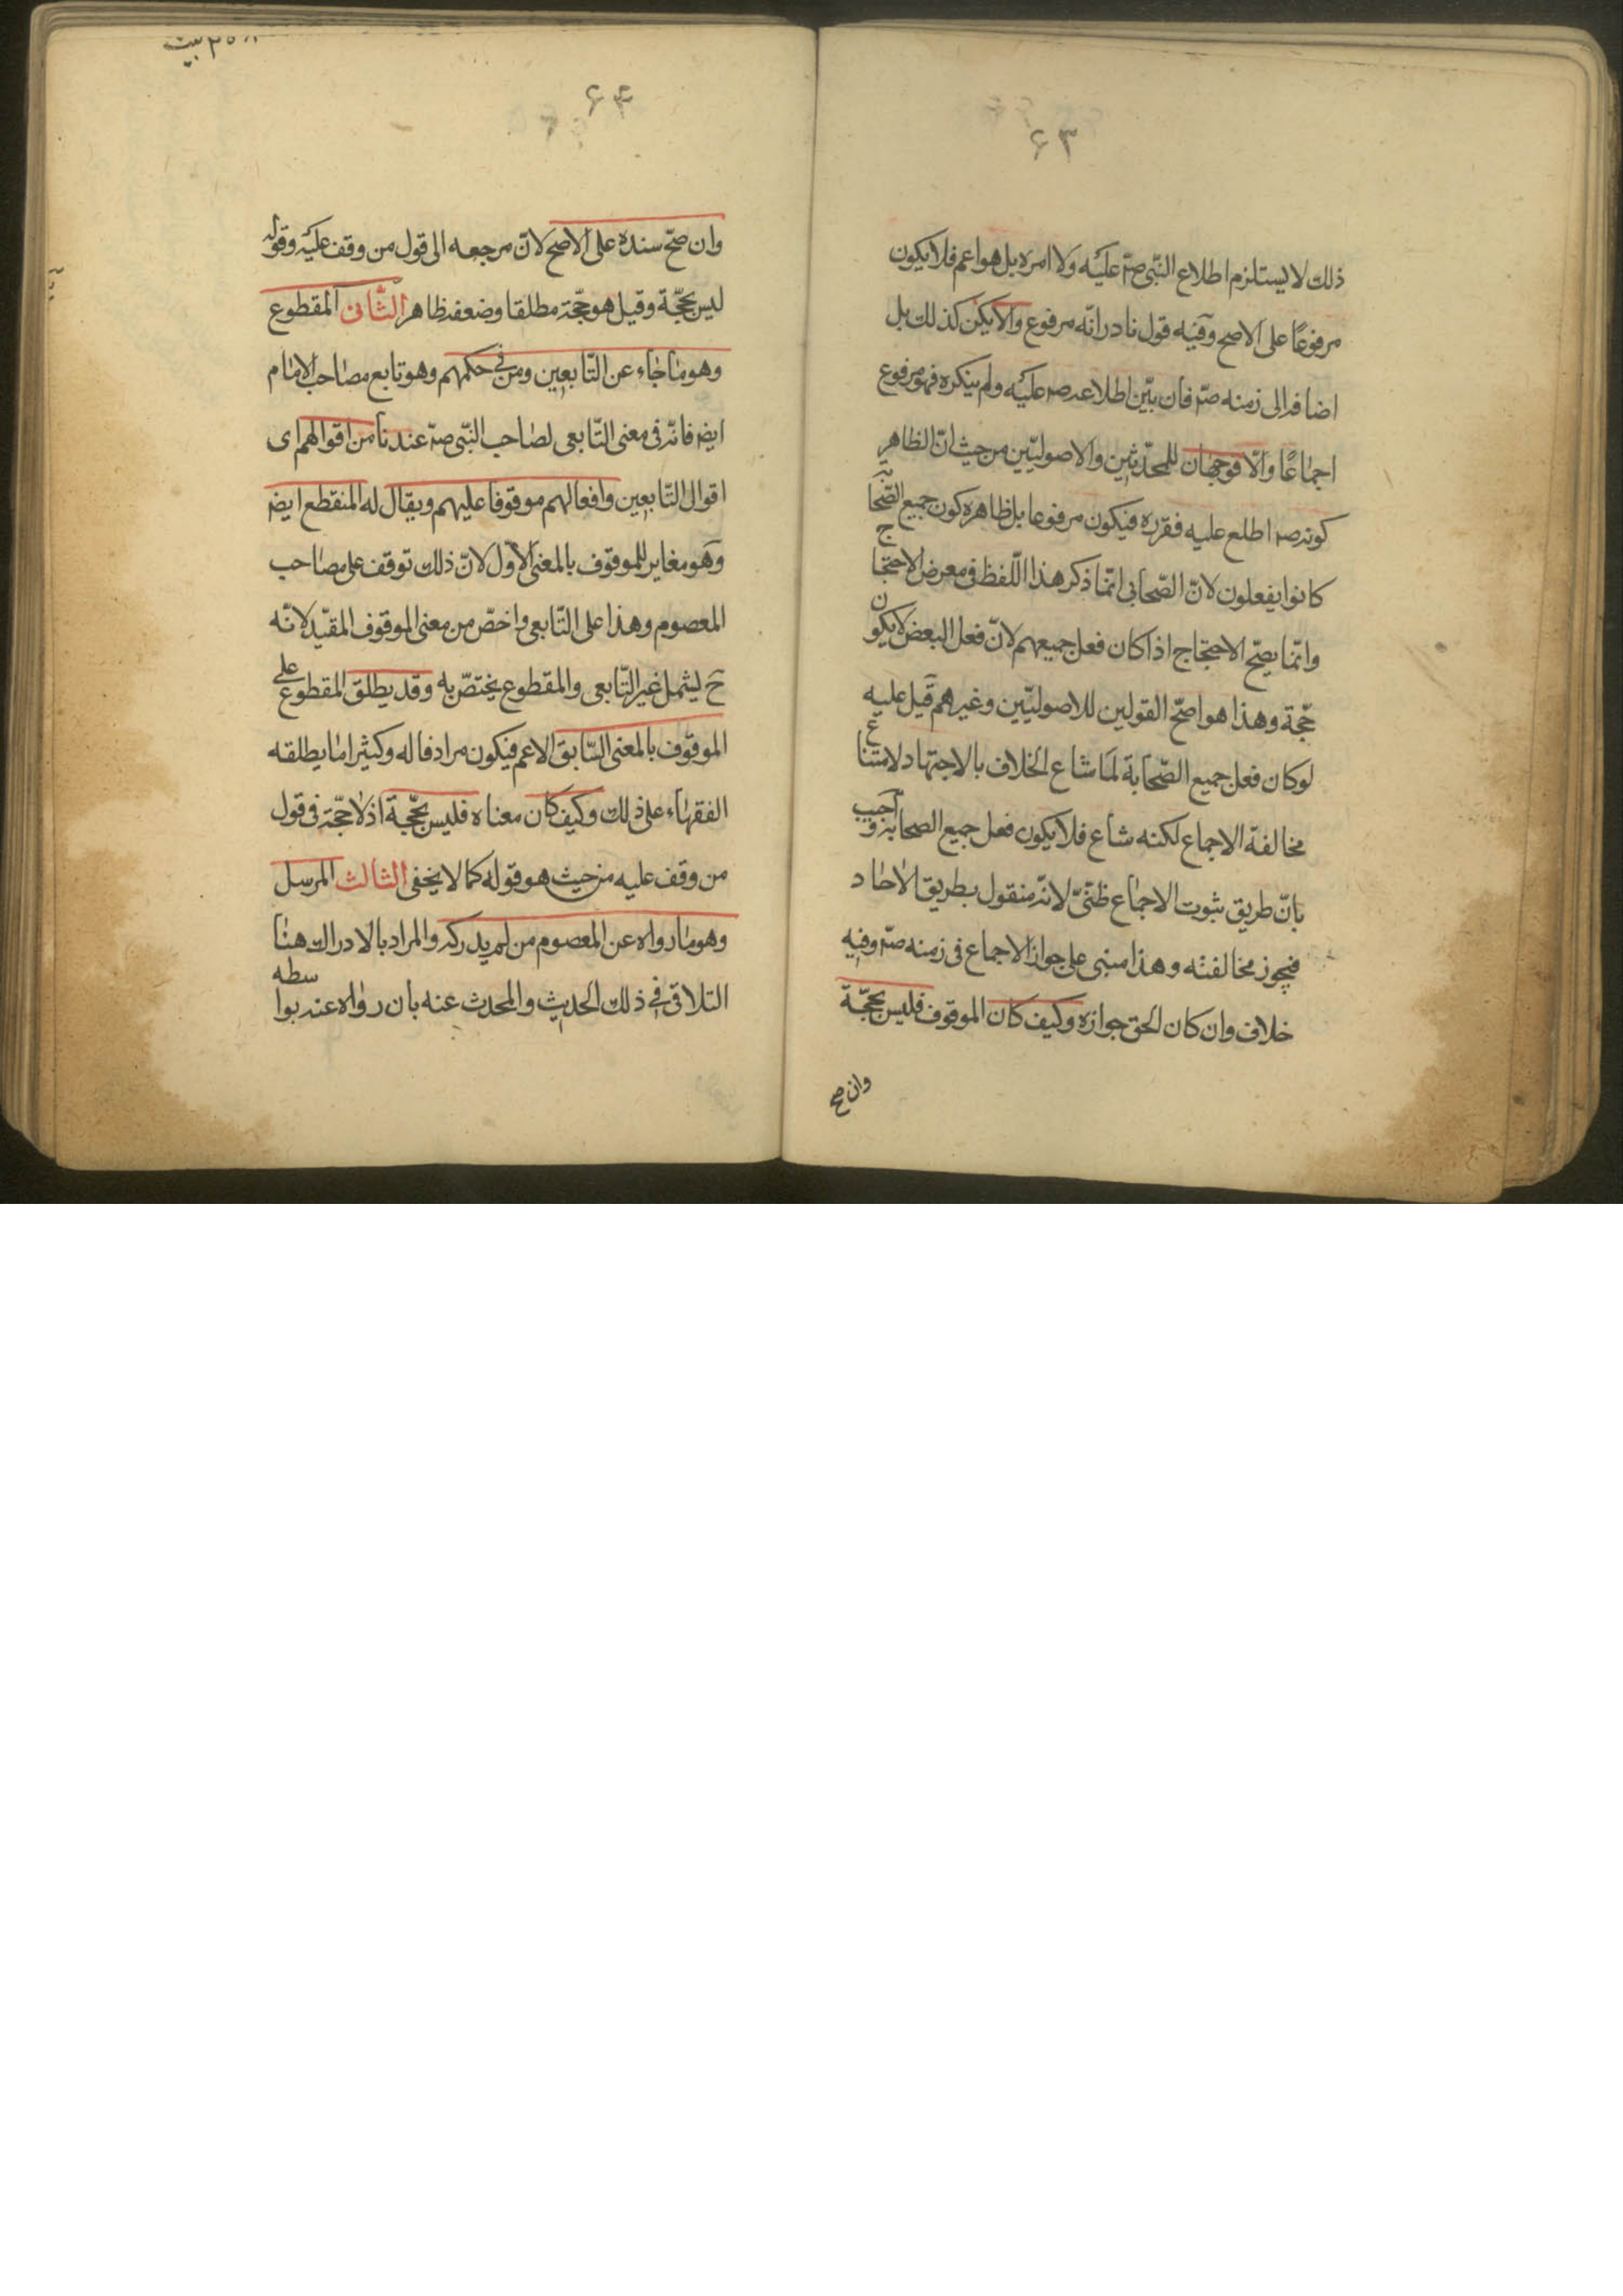 ۶۳
ذلك لا يستلزم اطلاع النّبى صۤ عليه ولا امره بل هو اعم فلا يكون
مرفوعًا على الاصح وفيه قول نادر انّه مرفوع والا يكن كذلك بل
اضافه الى زمنه صۤ فان بيّن اطلاعه صۤ عليه ولم ينكره فهو مرفوع
اجماعًا والّا فوجهان للمحدّثين والاصوليّين من حيث انّ الظاهر
كونه صۤ اطلع عليه فقرره فيكون مرفوعا بل ظاهره كون جميع الصّحابة
كانوا يفعلون لانّ الصّحابى انّما ذكر هذا اللّفظ فى معرض الاحتجاج
وانّما يصحّ الاحتجاج اذا كان فعل جميعهم لانّ فعل البعض لا يكون
حجّة وهذا هو اصحّ القولين للاصوليّين وغيرهم قيل عليه
لو كان فعل جميع الصّحابة لما شاع الخلاف بالاجتهاد لامتناع
مخالفة الاجماع لكنه شاع فلا يكون فعل جميع الصحابة واجيب
بانّ طريق ثبوت الاجماع ظنّىّ لانّه منقول بطريق الاحاد
فيجوز مخالفته وهذا مبنى على جواز الاجماع فى زمنه صۤ وفيه
خلاف وان كان الحق جوازه وكيف كان الموقوف فليس بحجّة
وان صح
۶۴
وان صحّ سنده على الاصح لانّ مرجعه الى قول من وقف عليه وقوله
ليس بحجّة وقيل هو حجّة مطلقا وضعفه ظاهر الثّانى المقطوع
وهو ما جاء عن التّابعين ومن فى حكمهم وهو تابع مصاحب الامام
ايضا فانّه فى معنى التّابعى لصاحب النّبى صۤ عندنا من اقوالهم اى
اقوال التّابعين وافعالهم موقوفا عليهم ويقال له المنقطع ايضا
وهو مغاير للموقوف بالمعنى الاوّل لانّ ذلك توقف على مصاحب
المعصوم وهذا على التّابعى واخصّ من معنى الموقوف المقيّد لانّه
ح ليشمل غير التّابعى والمقطوع يختصّ به وقد يطلق المقطوع على
الموقوف بالمعنى السّابق الاعم فيكون مرادفا له وكثيرا ما يطلقه
الفقهاء على ذلك وكيف كان معناه فليس بحجّة اذ لا حجّة فى قول
من وقف عليه من حيث هو قوله كما لا يخفى الثالث المرسل
وهو ما رواه عن المعصوم من لم يدركه والمراد بالادراك هنا
التلاقى فى ذلك الحديث والمحدث عنه بان رواه عنه بواسطه